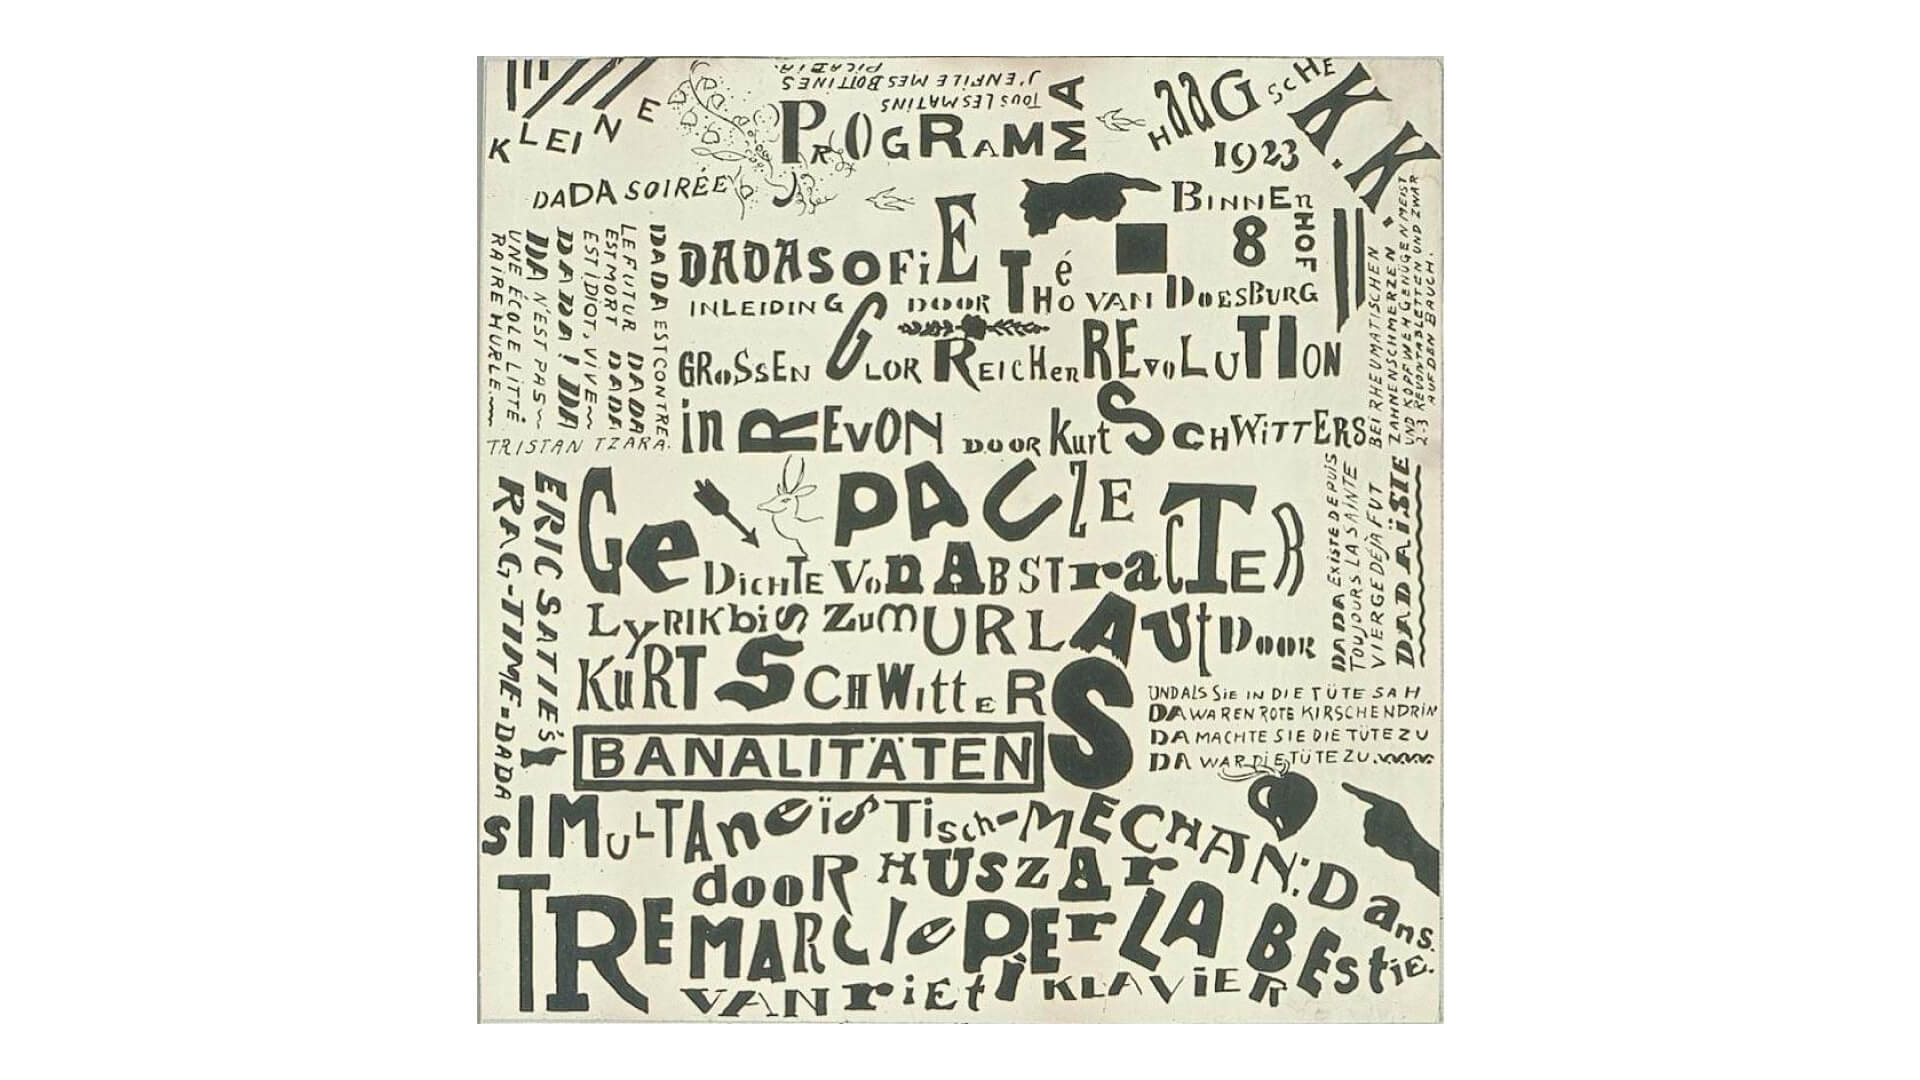 TOUS LES MATINS
J'ENFILE MES BOTTINES
PICABIA.
KLEINE
DADA SOIRÉE
PROGRAMMA
HAAGSCHE K.K.
1923
BINNENHOF 8
DADASOFIE Thé
INLEIDING DOOR THO VAN DOESBURG
GROSSEN GLORREICHEN REVOLUTION
in REVON DOOR Kurt SCHWITTERS
DADA EST CONTRE
LE FUTUR DADA
EST MORT DADA
EST IDIOT, VIVE
DADA! DADA
DA N'EST PAS
UNE ÉCOLE LITTÉ
RAIRE HURLE
TRISTAN TZARA.
BEI RHEUMATISCHEN
ZAHNENSCHMERZEN
UND KOPFWEH GENÜGEN MEIST
2-3 REVONTABLETTEN UND ZWAR
AUF DEN BAUCH.
ERIC SATIE'S
RAG-TIME=DADA
Ge PAUZE
DICHTE VON ABSTraCTER
LyRIK biS ZUM URLAUt DOOR
KURT SCHWittERS
BANALITÄTEN
DADA EXISTE DEPUIS
TOUJOURS LA SAINTE
VIERGE DÉJÀ FUT
DADAÏSTE
UND ALS SiE IN DIE TÜTE SAH
DA WAREN ROTE KIRSCHEN DRIN
DA MACHTE SIE DIE TÜTE ZU
DA WAR DiE TÜTE ZU.
SIMULTANeïSTisch-MECHAN: Dans.
dooR HUSZAr
TRE MARCIe PEr LA BEStiE.
VAN riEti KLAViER